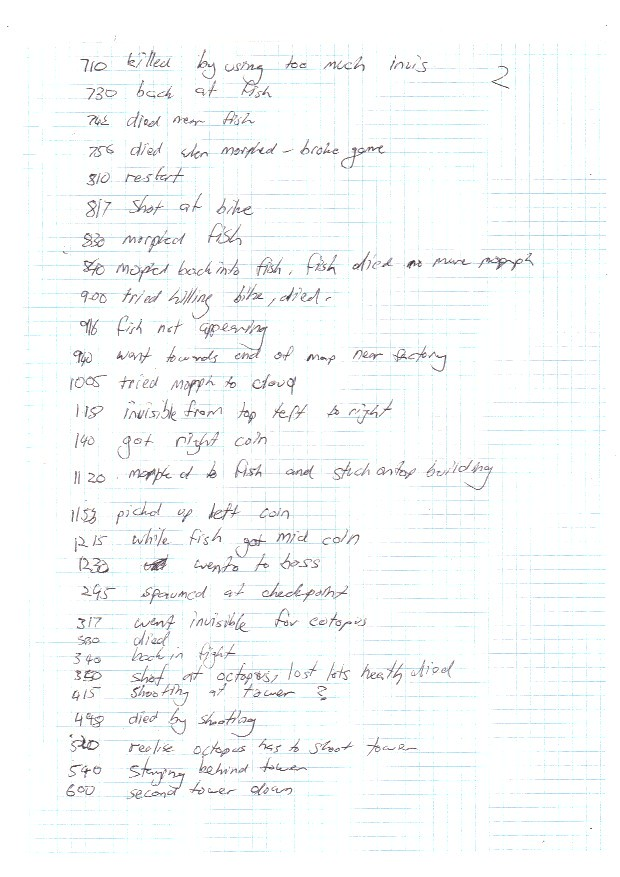 710 killed by using too much invis
2
730 back at fish
742 died near fish
756 died when morphed - broke game
810 restart
817 shot at bike
830 morphed fish
840 mopted back into fish, fish died no more morph
900 tried killing bike, died.
916 fish not appearing
940 want towards end of map near factory
1005 tried morph to cloud
115 invisible from top left to right
140 got right coin
1120 morphed to fish and stuck on top building
1153 pickd up left coin
1215 while fish got mid coin
1230 wento to boss
245 spawned at checkpoint
317 went invisible for cotopus
330 died
340 back in fight
350 shot at octopus, lost lots heath died
415 shooting at tower ?
448 died by shooting
520 realise octopus has to shoot tower
540 staying behind tower
600 second tower down